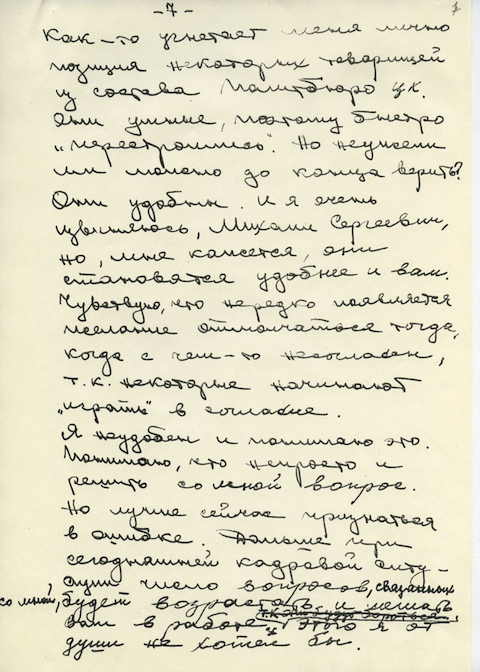 -7-
7
Как-то угнетает меня лично
позиция некоторых товарищей
из состава Политбюро ЦК.
Они умные, поэтому быстро
"перестроились". Но неужели
им можно до конца верить?
Они удобны. И я очень
извиняюсь, Михаил Сергеевич,
но, мне кажется, они
становятся удобнее и Вам.
Чувствую, что нередко появляется
желание отмолчаться тогда,
когда с чем-то несогласен,
т.к. некоторые начинают
"играть" в согласие.
Я неудобен и понимаю это.
Понимаю, что непросто и
решить со мной вопрос.
Но лучше сейчас признаться
в ошибке. Дальше при
сегодняшней кадровой ситу-
ации число вопросов, связанных
со мной, будет возрастать и мешать
Вам в работе. Этого я от
души не хотел бы.